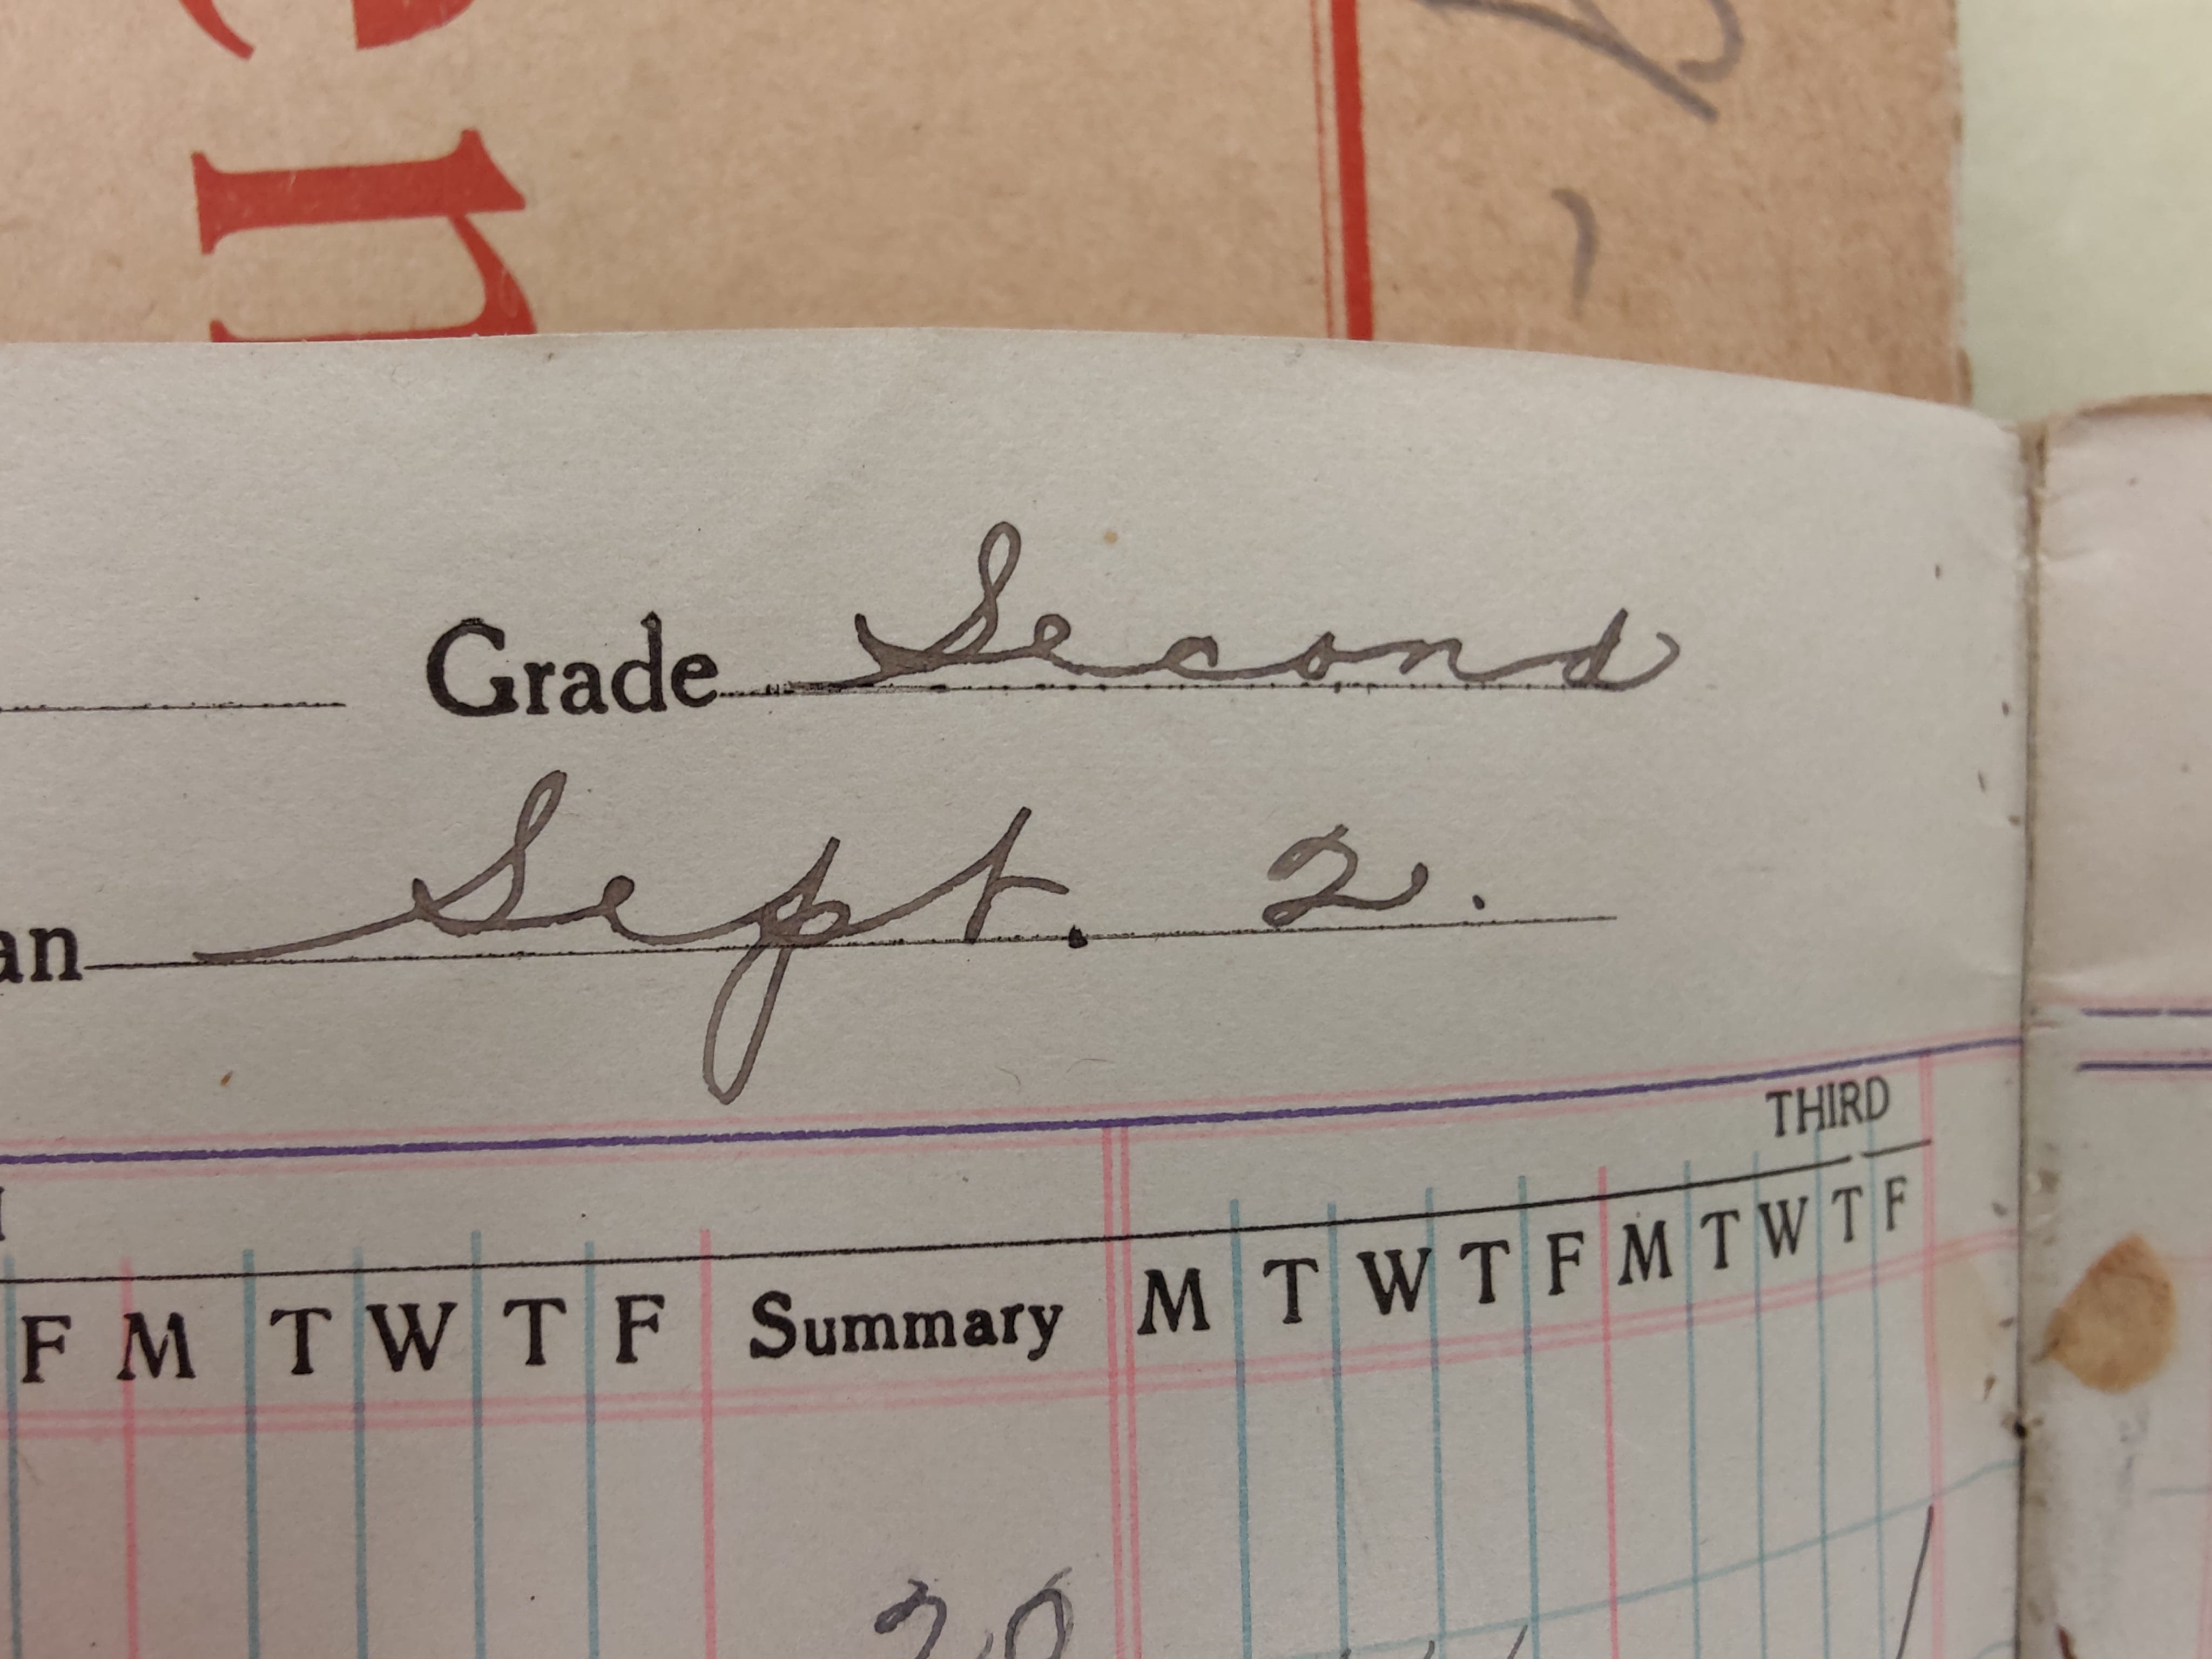 en
Grade Second
an Sept. 2.
THIRD
F M T W T F Summary M T W T F M T W T F
20